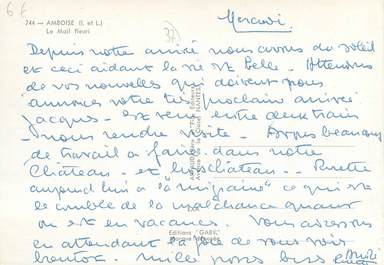 6€
744 — AMBOISE (I. et L.)
Le Mail fleuri
37
Mercredi
Depuis notre arrivée nous avons du soleil
et ceci aidant la vie est belle. Attendons
de vos nouvelles qui doivent nous
annoncer votre très prochaine arrivée
Jacques est venu entre deux trains
nous rendre visite. Avons beaucoup
de travail à faire dans notre
Château. et
aujourd'hui a la "migraine" ce qui est
le comble de la malchance quand
on est en vacances. Vous adressons
en attendant la joie de vous voir
bientôt mille bons
Editions "GABY"